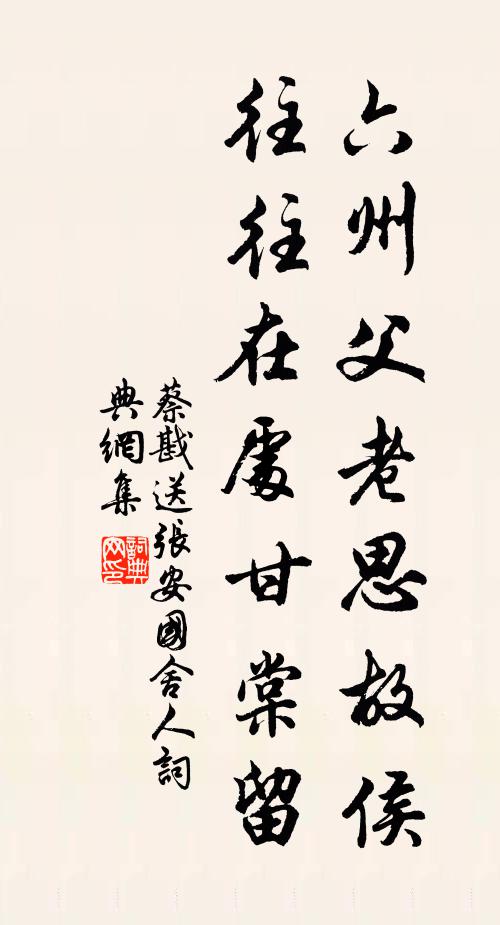 六州父老思故侯
往往在處甘棠留
蔡戡送張安國舍人詞
典網集
詞典網印